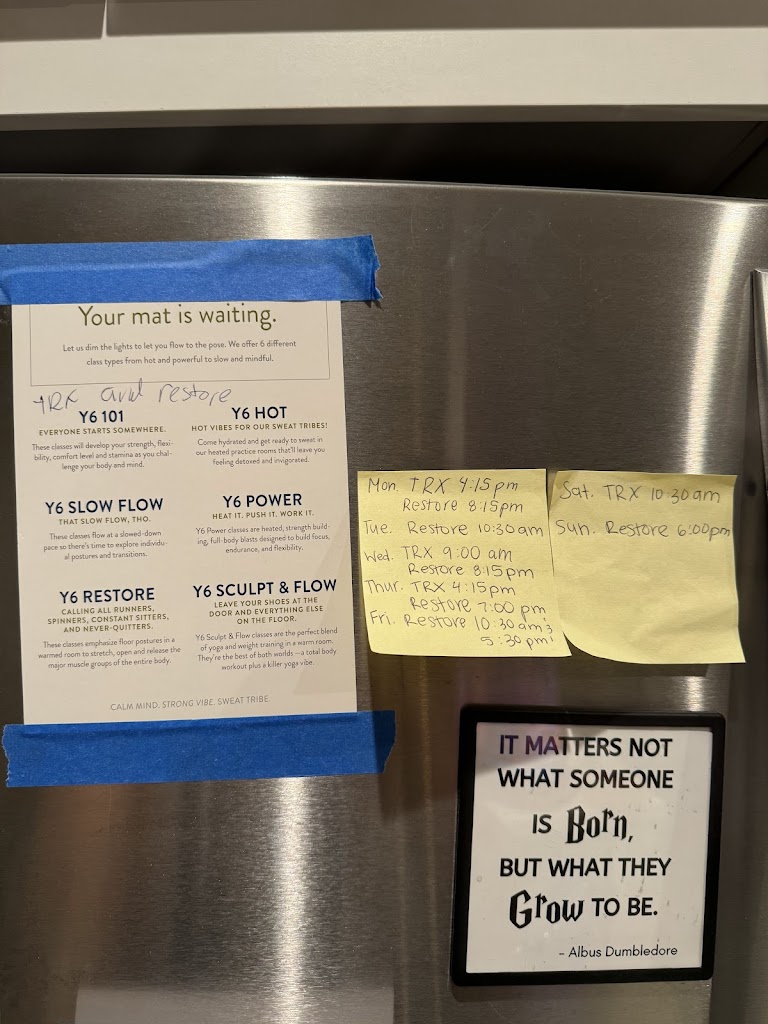 Your mat is waiting.
Let us dim the lights to let you flow to the pose. We offer 6 different
class types from hot and powerful to slow and mindful.
TRX and restore
Y6 101
EVERYONE STARTS SOMEWHERE.
These classes will develop your strength, flexi-
bility, comfort level and stamina as you chal-
lenge your body and mind.
Y6 HOT
HOT VIBES FOR OUR SWEAT TRIBES!
Come hydrated and get ready to sweat in
our heated practice rooms that'll leave you
feeling detoxed and invigorated.
Y6 SLOW FLOW
THAT SLOW FLOW, THO.
These classes flow at a slowed-down
pace so there's time to explore individu-
al postures and transitions.
Y6 POWER
HEAT IT. PUSH IT. WORK IT.
Y6 Power classes are heated, strength build-
ing, full-body blasts designed to build focus,
endurance, and flexibility.
Y6 RESTORE
CALLING ALL RUNNERS,
SPINNERS, CONSTANT SITTERS,
AND NEVER-QUITTERS.
These classes emphasize floor postures in a
warmed room to stretch, open and release the
major muscle groups of the entire body.
Y6 SCULPT & FLOW
LEAVE YOUR SHOES AT THE
DOOR AND EVERYTHING ELSE
ON THE FLOOR.
Y6 Sculpt & Flow classes are the perfect blend
of yoga and weight training in a warm room.
They're the best of both worlds—a total body
workout plus a killer yoga vibe.
CALM MIND. STRONG VIBE. SWEAT TRIBE.
Mon. TRX 4:15pm
Restore 8:15pm
Tue. Restore 10:30am
Wed. TRX 9:00 am
Restore 8:15pm
Thur. TRX 4:15pm
Restore 7:00 pm
Fri. Restore 10:30 am &
5:30 pm
Sat. TRX 10:30am
Sun. Restore 6:00pm
IT MATTERS NOT
WHAT SOMEONE
IS Born,
BUT WHAT THEY
Grow TO BE.
- Albus Dumbledore